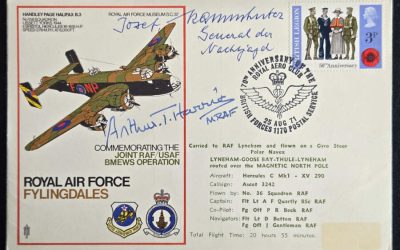 HANDLEY PAGE HALIFAX B.3
ROYAL AIR FORCE MUSEUM
Josef Kammhuber
General der
Nachtjagd
BRITISH LEGION
3P
50th Anniversary
70TH ANNIVERSARY OF THE
ROYAL AERO CLUB
25 AUG 71
BRITISH FORCES 1170 POSTAL SERVICE
Arthur T. Harris
MRAF
COMMEMORATING THE
JOINT RAF/USAF
BMEWS OPERATION
ROYAL AIR FORCE
FYLINGDALES
Carried to RAF Lyneham and flown on a Gyro Steer
Polar Navex
LYNEHAM-GOOSE BAY-THULE-LYNEHAM
routed over the MAGNETIC NORTH POLE
Aircraft: Hercules C Mk1 - XV 290
Callsign: Ascot 3242
Captain: Flt Lt A F Quartly BSc RAF
Co-Pilot: Fg Off P R Beck RAF
Navigators: Flt Lt D Button RAF
Fg Off J Gentleman RAF
Total Flight Time: 20 hrs 55 mins.